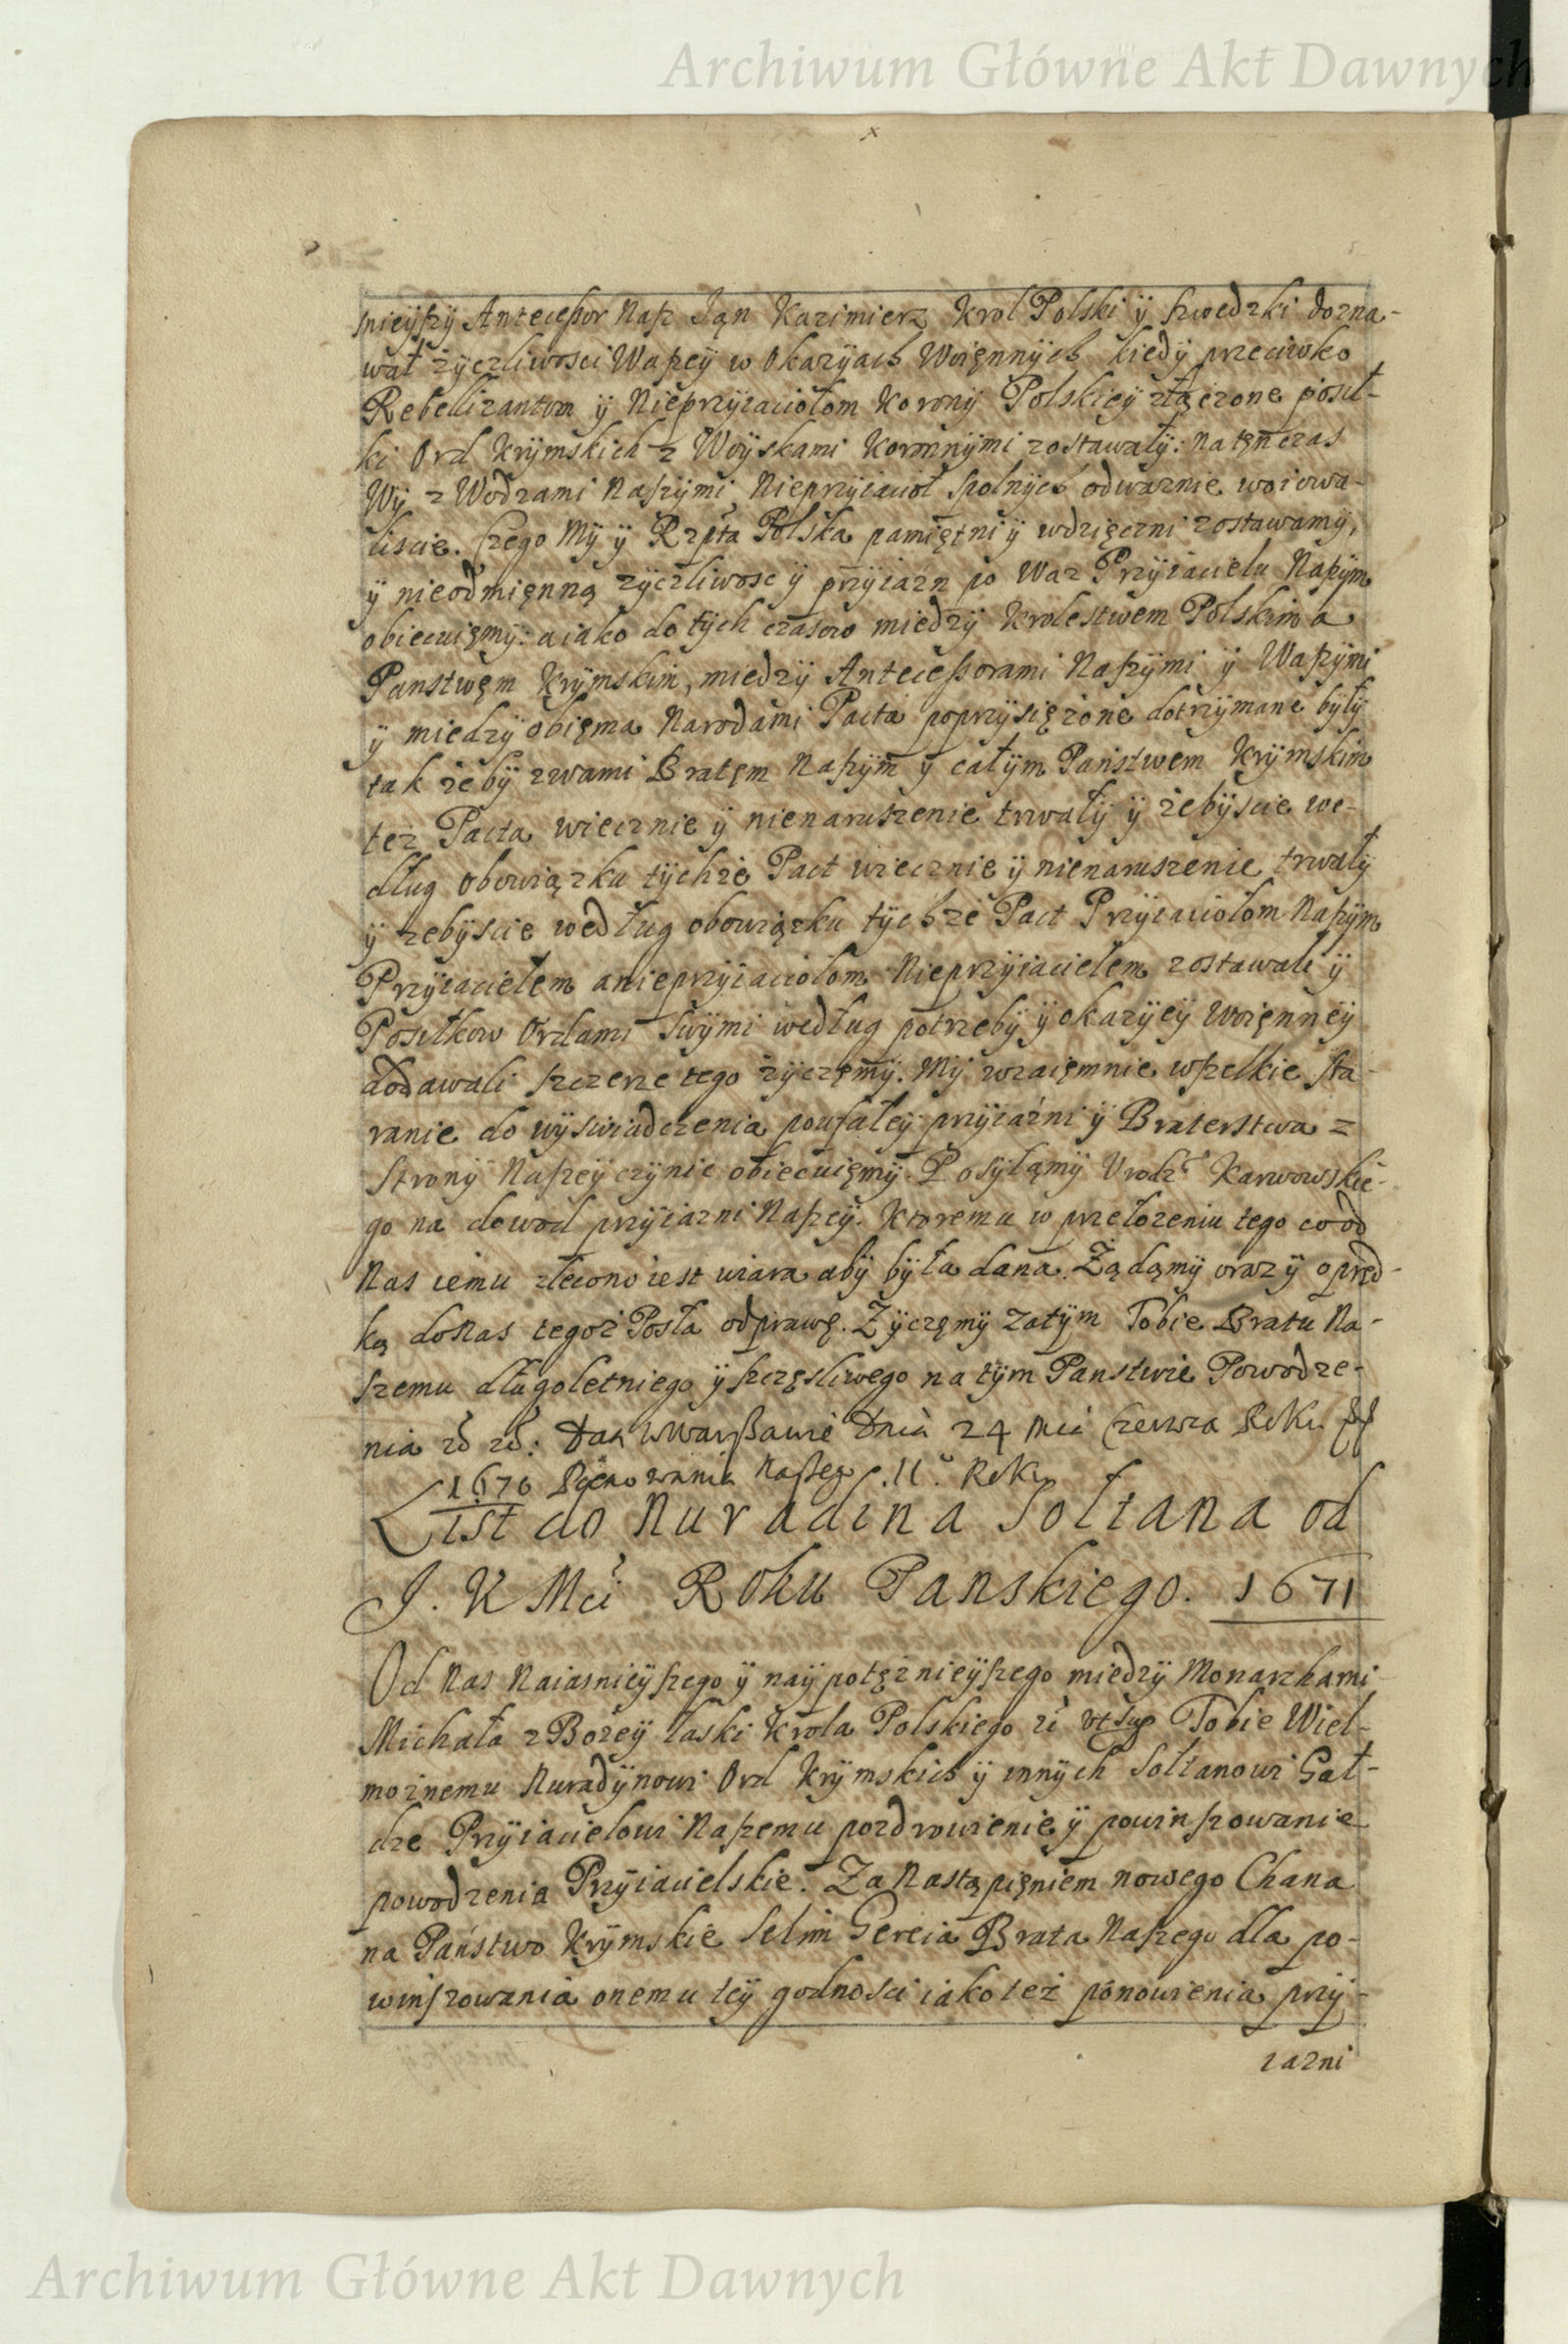 Archiwum Główne Akt Dawnych
snieÿszÿ Antecessor Nasz Ian Kazimierz Krol Polski ÿ Szwedzki dozna-
wał zÿczliwosci Waszeÿ w Okazÿach Woięnnÿch kiedÿ przeciwko
Rebellizantom ÿ Nieprzÿiaciołom Koronÿ Polskieÿ złączone posił-
ki Ord Krÿmskich z Woÿskami Koronnÿmi zostawałÿ: natęnczas
Wÿ z Wodzami Naszÿmi Nieprzÿiacioł spolnÿch odwaznie woiowa-
liscie. Czego Mÿ ÿ Rzpta Polska pamiętni ÿ wdzięczni zostawamÿ,
ÿ nieodmięnną zÿczliwosc ÿ przÿiaźn po Was Przÿiacielu Naszÿm
obiecuięmÿ: a iako do tÿch czasow miedzÿ Krolestwem Polskim a
Panstwęm Krÿmskim, miedzÿ Antecessorami Naszÿmi ÿ Waszÿmi
ÿ miedzÿ obięma Narodami Pacta poprzÿsięzone dotrzÿmane bÿłÿ
tak zebÿ zwami Bratęm Naszÿm ÿ całÿm Państwem Krÿmskim
tez Pacta wiecznie ÿ nienaruszenie trwałÿ ÿ żebÿscie we-
dług Obowiązku tÿchże Pact wiecznie ÿ nienaruszenie trwałÿ
ÿ zebÿscie według obowiązku tÿchże Pact Przÿiaciołom Naszÿm
Przÿiacielem anieprzÿiaciołom Nieprzÿiacielem zostawali ÿ
Posiłkow Ordami swÿmi według potrzebÿ ÿ okazÿeÿ Woięnneÿ
dodawali szczerze tego zÿczęmÿ. Mÿ wzaięmnie wszelkie sta-
ranie do wÿswiadczenia poufałeÿ przÿiaźni ÿ Braterstwa z
Stronÿ Naszeÿ czÿnic obiecuięmÿ. Posÿłamÿ Urodz° Karwowskie-
go na dowod przÿiazni Naszeÿ. Ktoremu w przełozeniu tego co od
Nas iemu zlecono iest wiara abÿ bÿła dana. Żądamÿ oraz ÿ o pręd-
ką doNas tegoż Posła odprawę. Zÿczęmÿ zatÿm Tobie Bratu Na-
szemu długoletniego ÿ szczęsliwego na tÿm Panstwie Powodze-
nia : Dan w Warszawie Dnia 24 Mca Czerwca Roku
1670 Panowania Naszego .II. Roku
List do Nuradina Sołtana od
J. K Mci Roku Panskiego. 1671
Od Nas Naiasnieÿszego ÿ naÿpotężnieÿszego miedzÿ Monarchami
Michała z Bożeÿ łaski Krola Polskiego ut Sup Tobie Wiel-
możnemu Nuradÿnowi Ord Krÿmskich ÿ innÿch Sołtanowi Gał-
dze Przÿiacielowi Naszemu pozdrowienie ÿ powinszowanie
powodzenia Przÿiacielskie. Za Nastąpięniem nowego Chana
na Państwo Krÿmskie Selim Gereia Brata Naszego dla po-
winszowania onemu teÿ godnosci iako też ponowienia przÿ-
iazni
Archiwum Główne Akt Dawnych